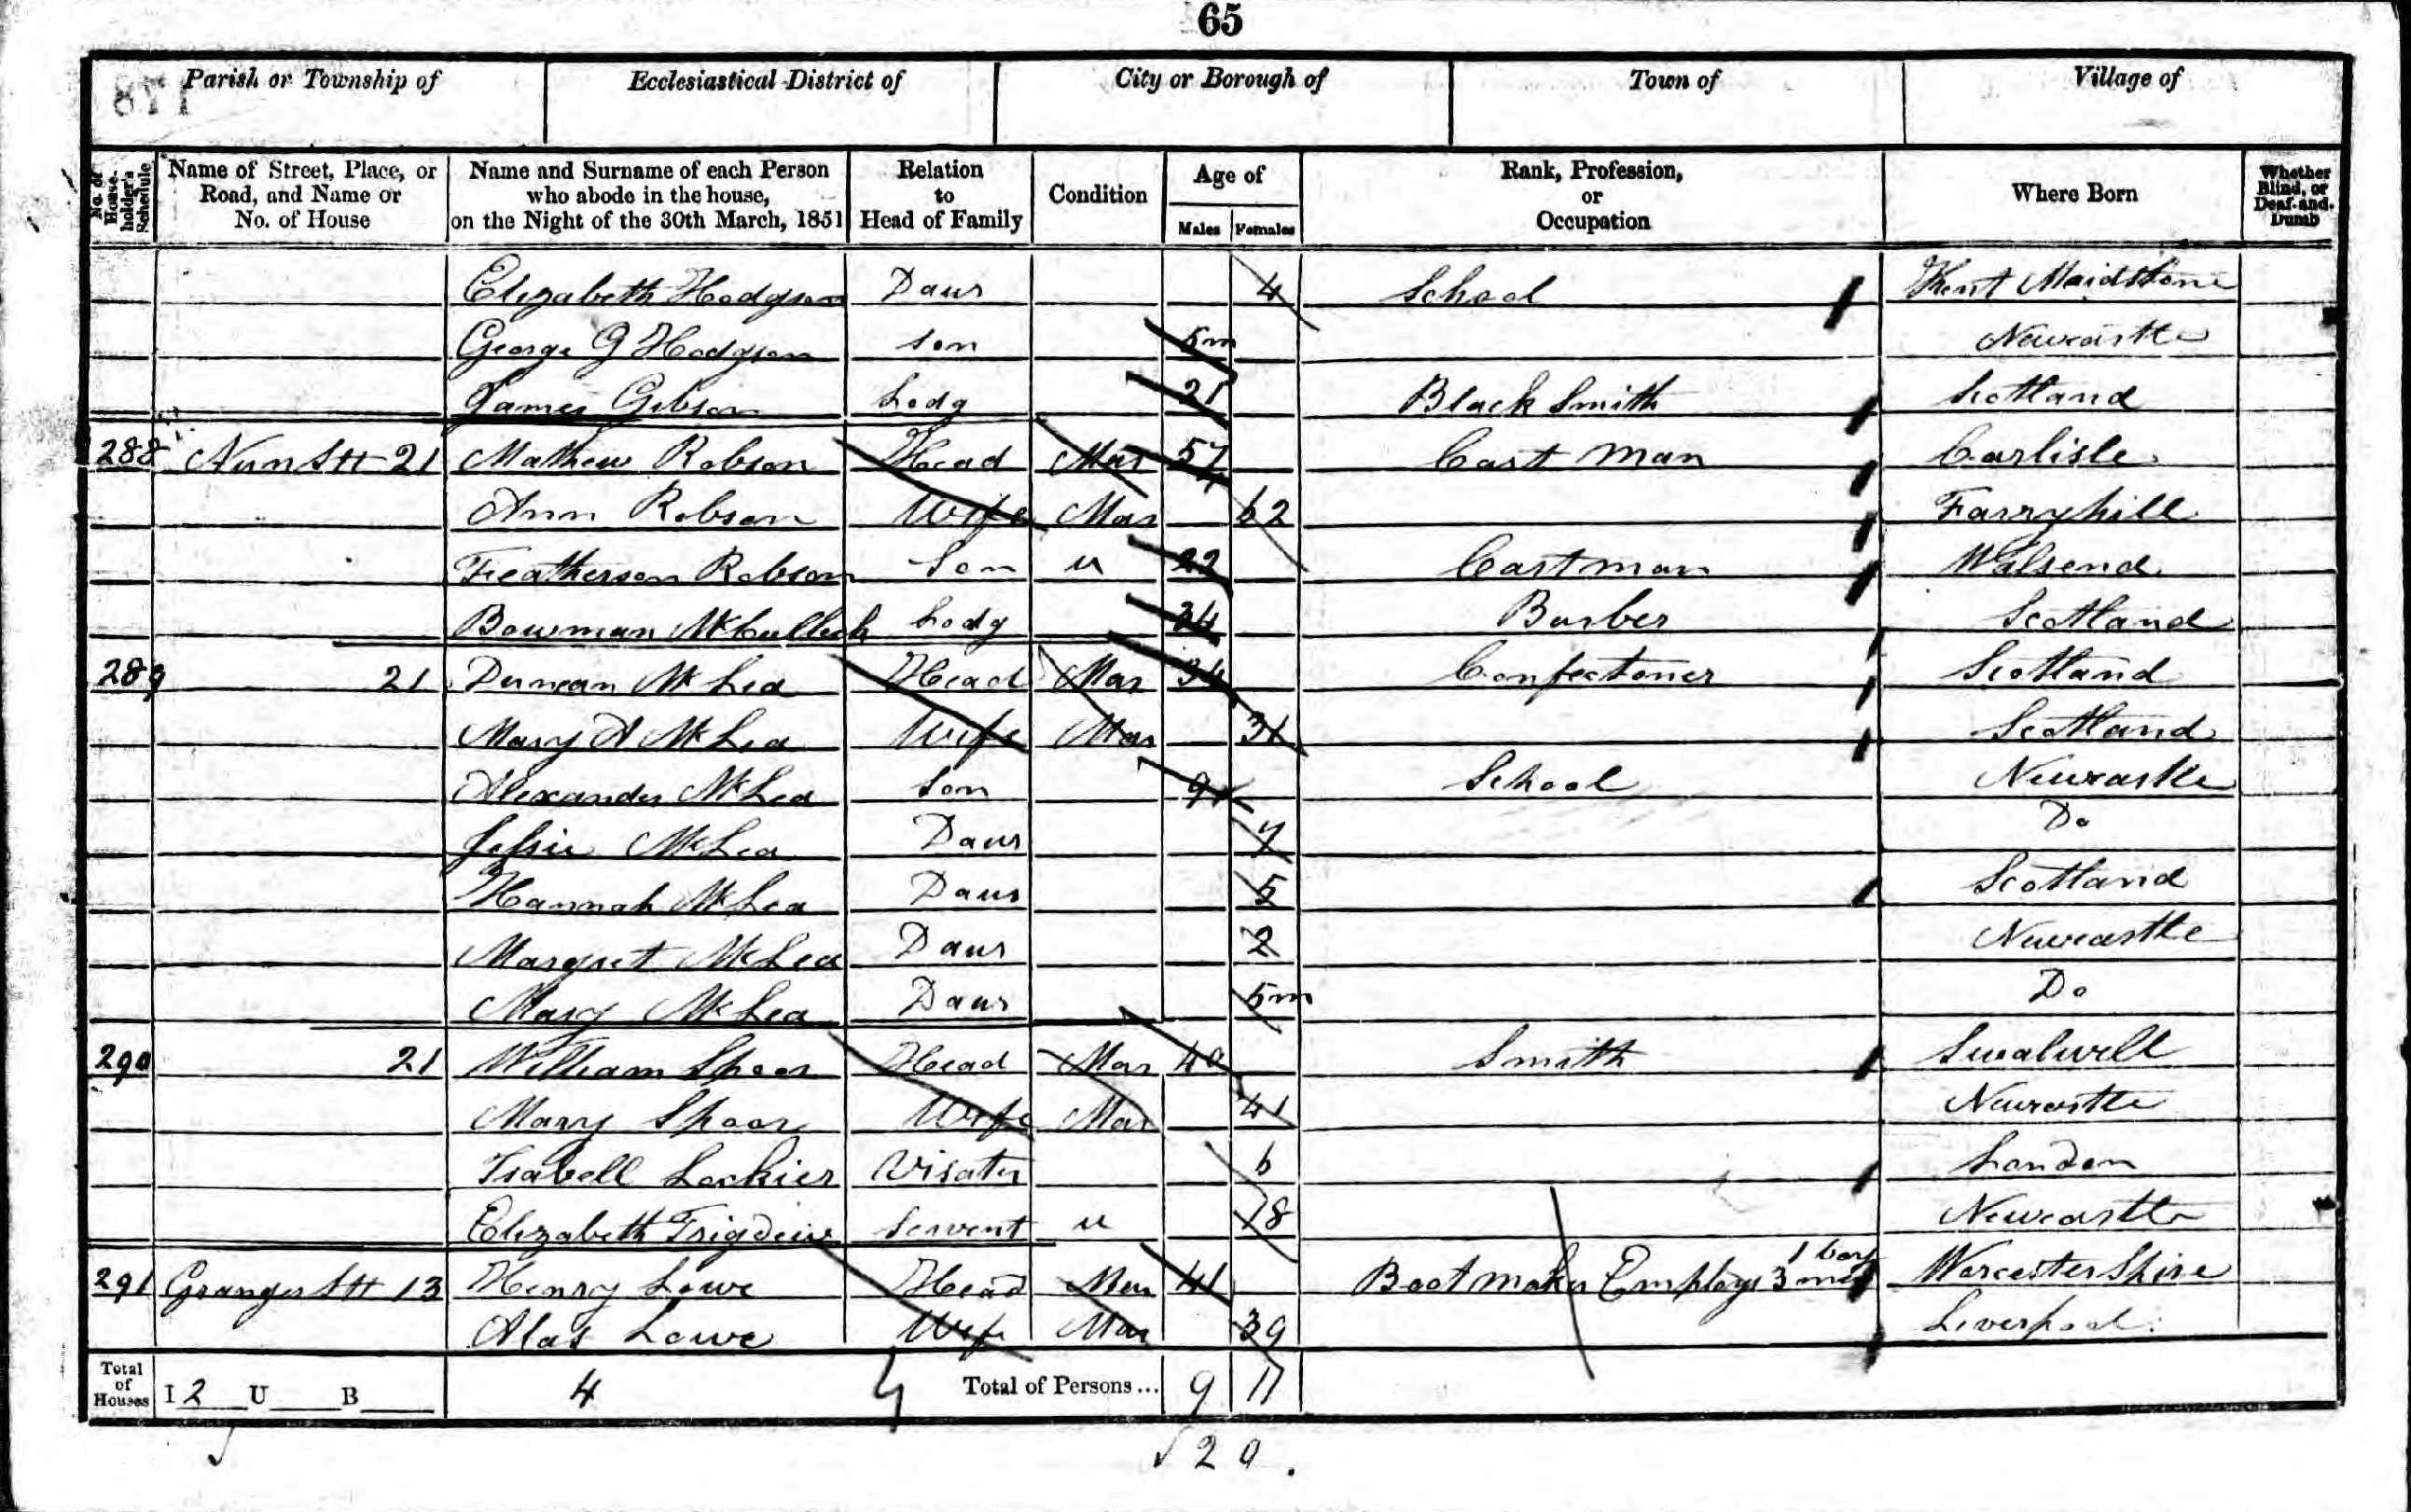 65
871
Parish or Township of Ecclesiastical District of City or Borough of Town of Village of
No. of House-holder's Schedule Name of Street, Place, or Road, and Name or No. of House Name and Surname of each Person who abode in the house, on the Night of the 30th March, 1851 Relation to Head of Family Condition Age of Males Females Rank, Profession, or Occupation Where Born Whether Blind, or Deaf-and-Dumb
Elizabeth Hodgson Daur 4 School Kent Maidstone
George G Hodgson Son 5m Newcastle
James Gibson Lodg 21 Black Smith Scotland
288 Nun Stt 21 Mathew Robson Head Mar 57 Cart Man Carlisle
Ann Robson Wife Mar 62 Farryhill
Featherson Robson Son u 22 Cartman Walsend
Bowman McCulloch Lodg 24 Barber Scotland
289 21 Duncan McLea Head Mar 34 Confectoner Scotland
Mary A McLea Wife Mar 31 Scotland
Alexander McLea Son 9 School Newcastle
Jessie McLea Daur 7 Do
Hannah McLea Daur 5 Scotland
Margret McLea Daur 2 Newcastle
Mary McLea Daur 5m Do
290 21 William Spoor Head Mar 40 Smith Swalwell
Mary Spoor Wife Mar 41 Newcastle
Isabell Lockier Visater 6 London
Elizabeth Servent u 18 Newcastle
291 Granger Stt 13 Henry Lowe Head Mar 41 Boot maker Employs 3 men 1 boy Worcester Shire
Lowe Wife Mar 39 Liverpool
Total of Houses I 2 U B 4 4 Total of Persons... 9 11
20.